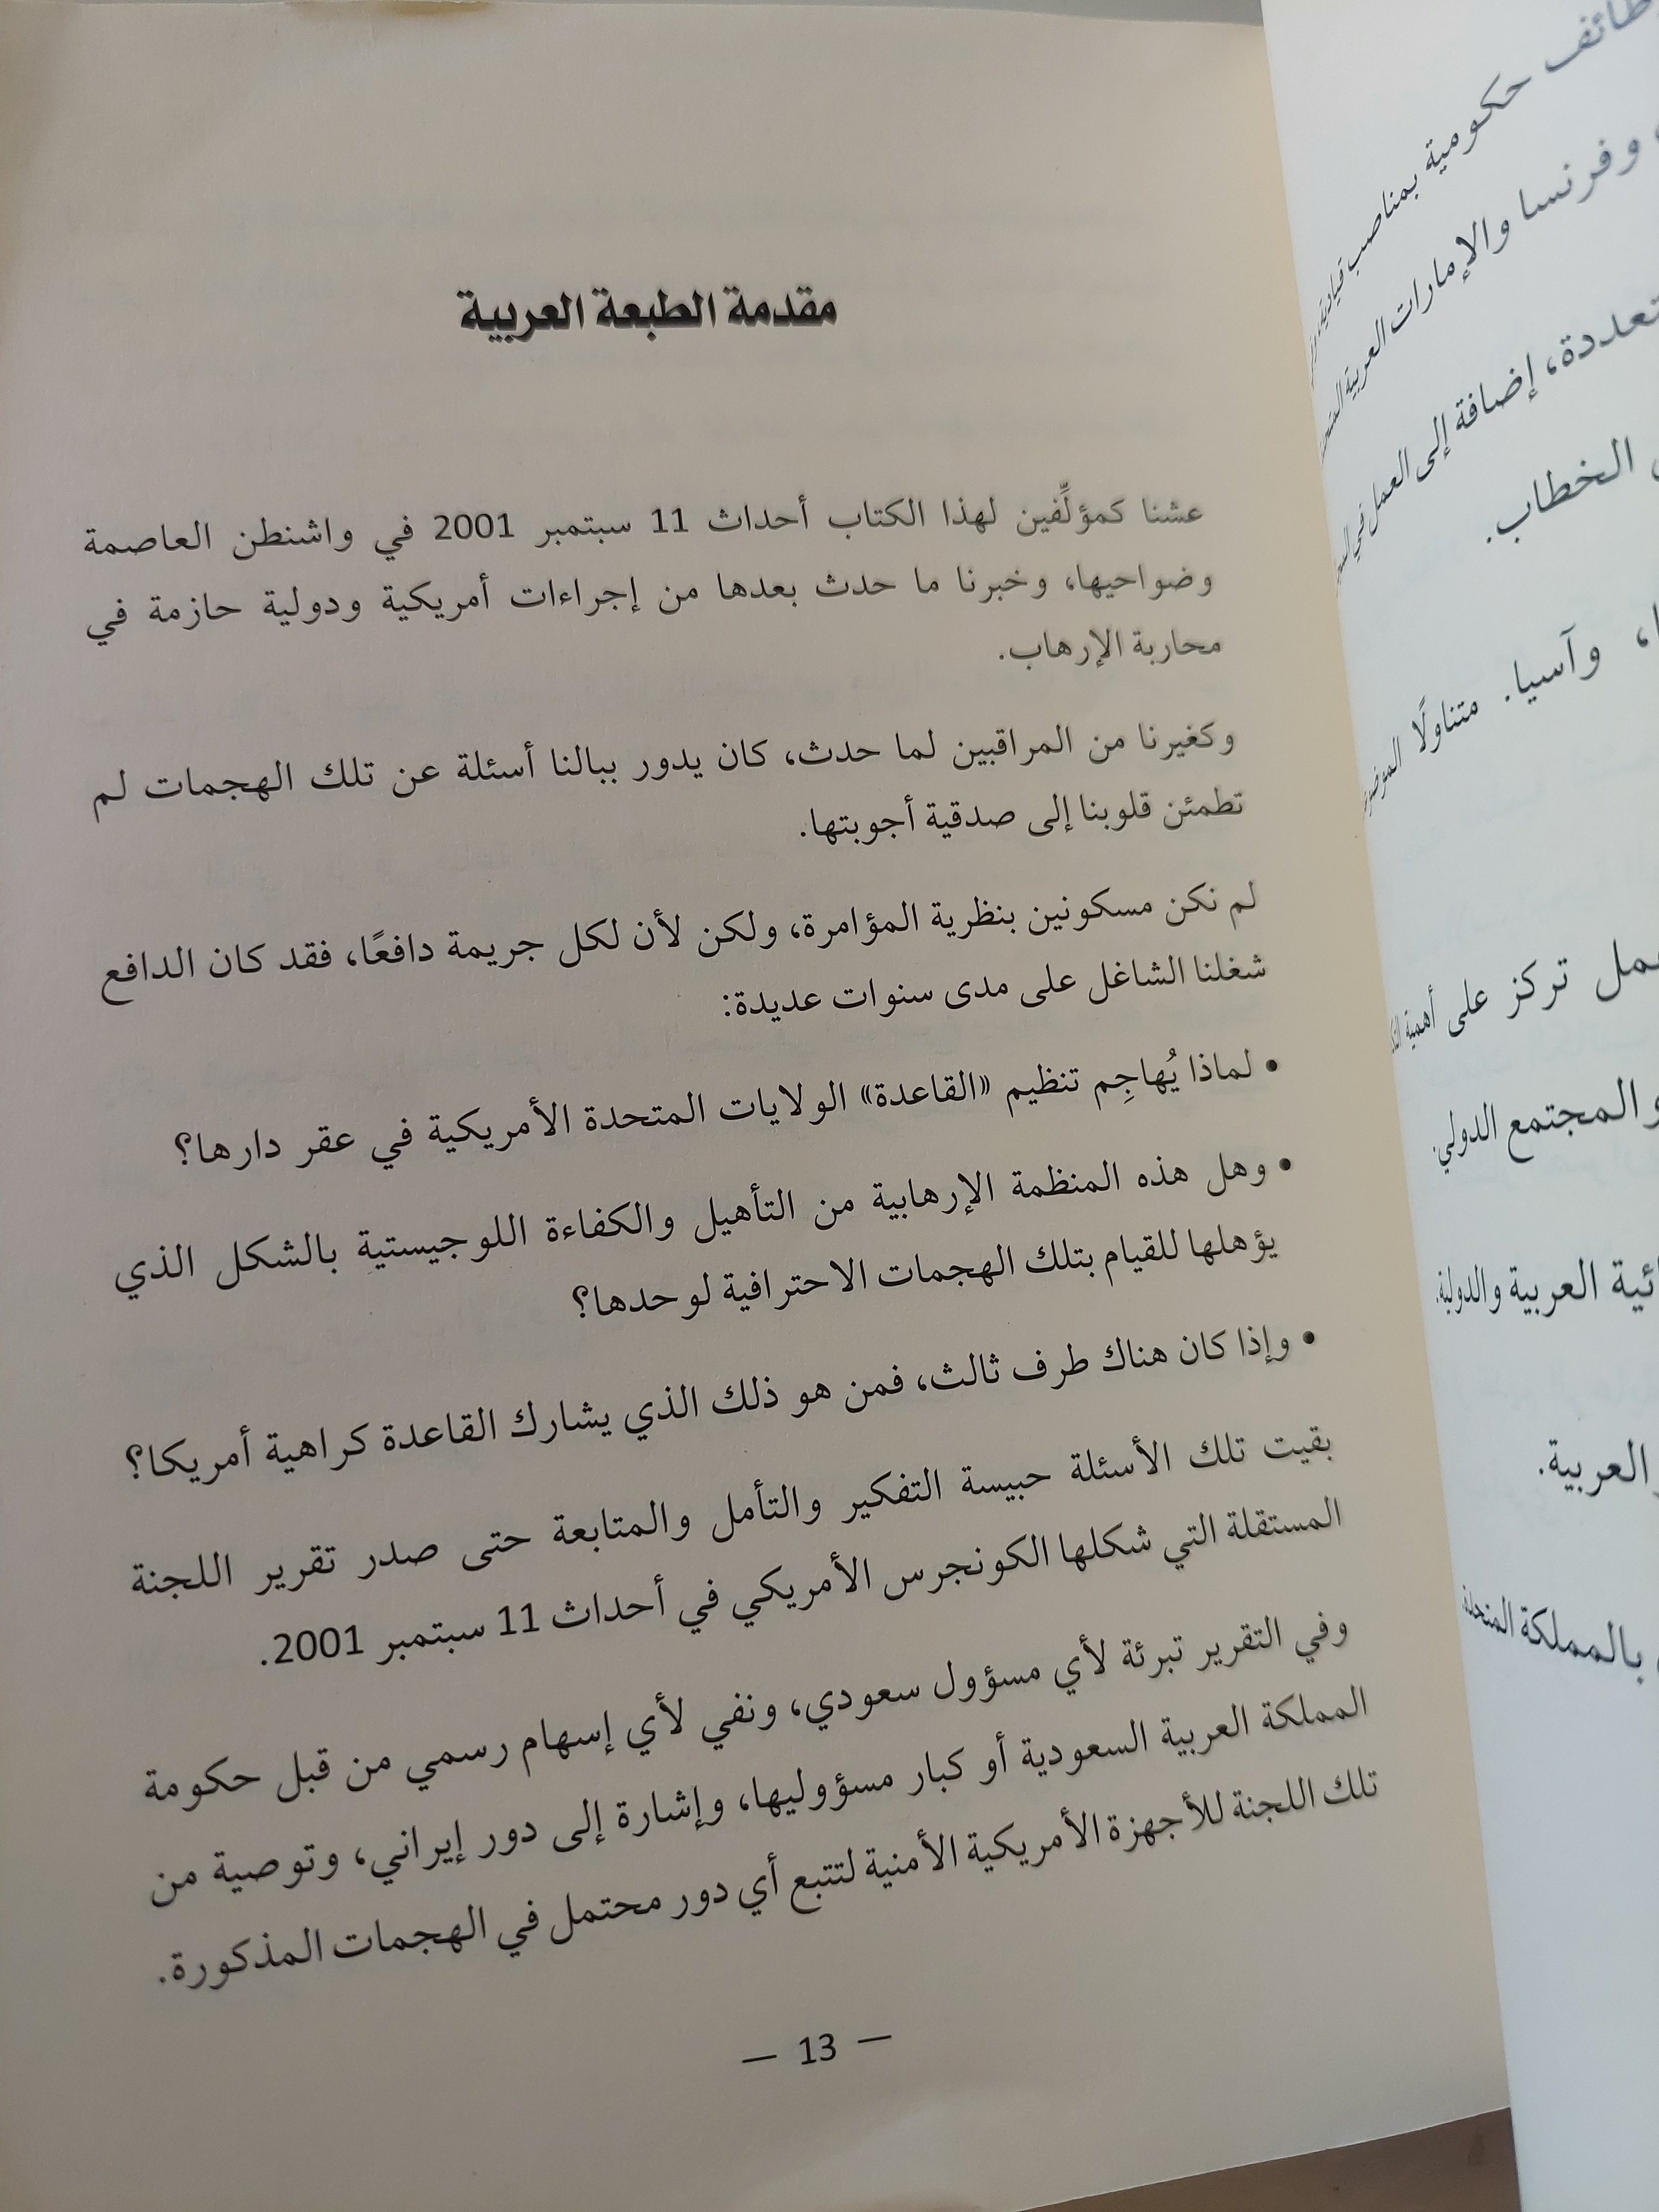 مقدمة الطبعة العربية
عشنا كمؤلِّفين لهذا الكتاب أحداث 11 سبتمبر 2001 في واشنطن العاصمة
وضواحيها، وخبرنا ما حدث بعدها من إجراءات أمريكية ودولية حازمة في
محاربة الإرهاب.
وكغيرنا من المراقبين لما حدث، كان يدور ببالنا أسئلة عن تلك الهجمات لم
تطمئن قلوبنا إلى صدقية أجوبتها.
لم نكن مسكونين بنظرية المؤامرة، ولكن لأن لكل جريمة دافعًا، فقد كان الدافع
شغلنا الشاغل على مدى سنوات عديدة:
• لماذا يُهاجِم تنظيم «القاعدة» الولايات المتحدة الأمريكية في عقر دارها؟
• وهل هذه المنظمة الإرهابية من التأهيل والكفاءة اللوجيستية بالشكل الذي
يؤهلها للقيام بتلك الهجمات الاحترافية لوحدها؟
• وإذا كان هناك طرف ثالث، فمن هو ذلك الذي يشارك القاعدة كراهية أمريكا؟
بقيت تلك الأسئلة حبيسة التفكير والتأمل والمتابعة حتى صدر تقرير اللجنة
المستقلة التي شكلها الكونجرس الأمريكي في أحداث 11 سبتمبر 2001.
وفي التقرير تبرئة لأي مسؤول سعودي، ونفي لأي إسهام رسمي من قبل حكومة
المملكة العربية السعودية أو كبار مسؤوليها، وإشارة إلى دور إيراني، وتوصية من
تلك اللجنة للأجهزة الأمريكية الأمنية لتتبع أي دور محتمل في الهجمات المذكورة.
— 13 —
حكومية بمناصب قيادية
وفرنسا والإمارات العربية
إضافة إلى العمل في
الخطاب.
وآسيا. متناولًا
تركز على أهمية
والمجتمع الدولي.
العربية والدولية.
العربية.
بالمملكة المتحدة